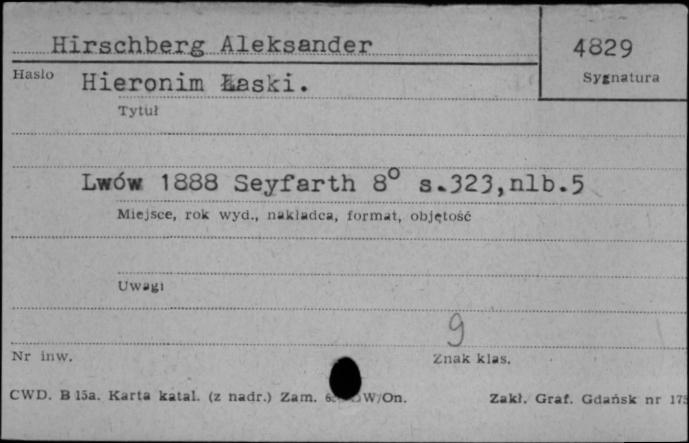 Hirschberg Aleksander
4829
Hasło
Sygnatura
Hieronim Łaski.
Tytuł
Lwów 1888 Seyfarth 8° s.323,nlb.5
Miejsce, rok wyd., nakładca, format, objętość
Uwagi
9
Nr inw.
Znak klas.
CWD. B 15a. Karta katal. (z nadr.) Zam. W/On.
Zakł. Graf. Gdańsk nr 175